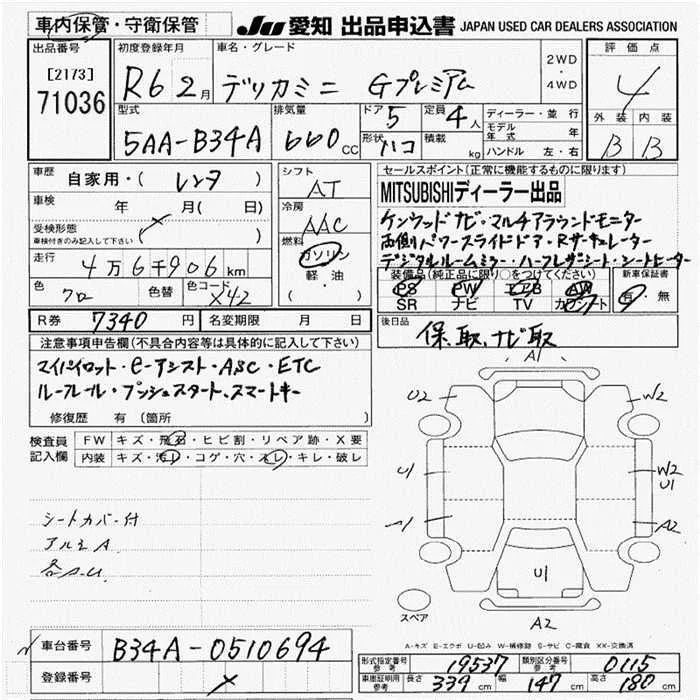 車内保管・守衛保管 JU 愛知 出品申込書 JAPAN USED CAR DEALERS ASSOCIATION
出品番号 初度登録年月 車名・グレード 2WD・4WD 評価点
[2173] 71036 R6 2月 デリカミニ Gプレミアム 4
型式 排気量 ドア 定員 ディーラー・並行 外装 内装
5AA-B34A 660cc 5 4人 モデル年式 年 B B
形状 ハコ 積載 kg ハンドル 左・右
車歴 自家用・( レンタ ) シフト AT セールスポイント(正常に機能するものに限ります)
車検 年 月( 日) 冷房 AAC MITSUBISHIディーラー出品
受検形態 車検付きのみ記入して下さい ( ) 燃料 ガソリン 軽油 ( )
ケンウッドナビ・マルチアラウンドモニター
両側パワースライドドア・Rサーキュレーター
デジタルルームミラー・ハーフレザーシート・シートヒーター
走行 4万6千906km
装備品(純正品に限り○をつけてください) 新車保証書
色 クロ 色替 色コード X42
PS PW エアB AW 有・無
SR ナビ TV カワシート
R券 7340円 名変期限 月 日
後日品 保、取、ナビ取
注意事項申告欄(不具合内容等は具体的に記入して下さい)
マイパイロット・e-アシスト・ASC・ETC
ルーフレール・プッシュスタート、スマートキー
修復歴 有 (箇所 )
検査員記入欄 FW キズ・飛石・ヒビ割・リペア跡・X要
内装 キズ・汚レ・コゲ・穴・スレ・キレ・破レ
シートカバー付
アルミA
各A.U
A1
U2 W2
U1 W2 U1
A1 A2
U1
スペア
A2
A-キズ E-エクボ U-凹み W-補修跡 S-サビ C-腐食 XX-交換済
車台番号 B34A-0510694
登録番号
形式指定番号 参考 19537 類別区分番号 参考 0115
車庫証明用 参考 長さ 339cm 幅 147cm 高さ 180cm